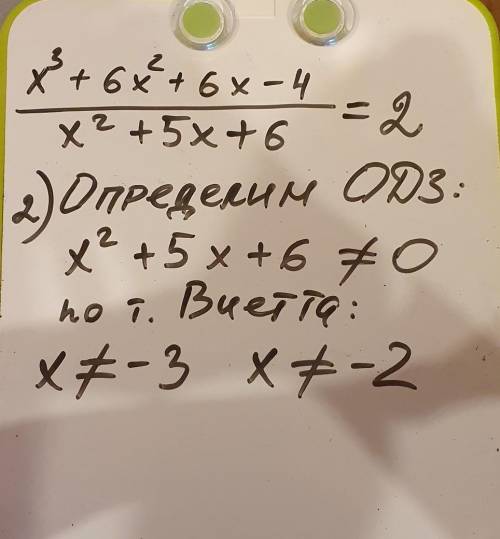 x³ + 6x² + 6x - 4
x² + 5x + 6
= 2
2) Определим ОДЗ:
x² + 5x + 6 ≠ 0
по т. Виетта:
x ≠ -3 x ≠ -2